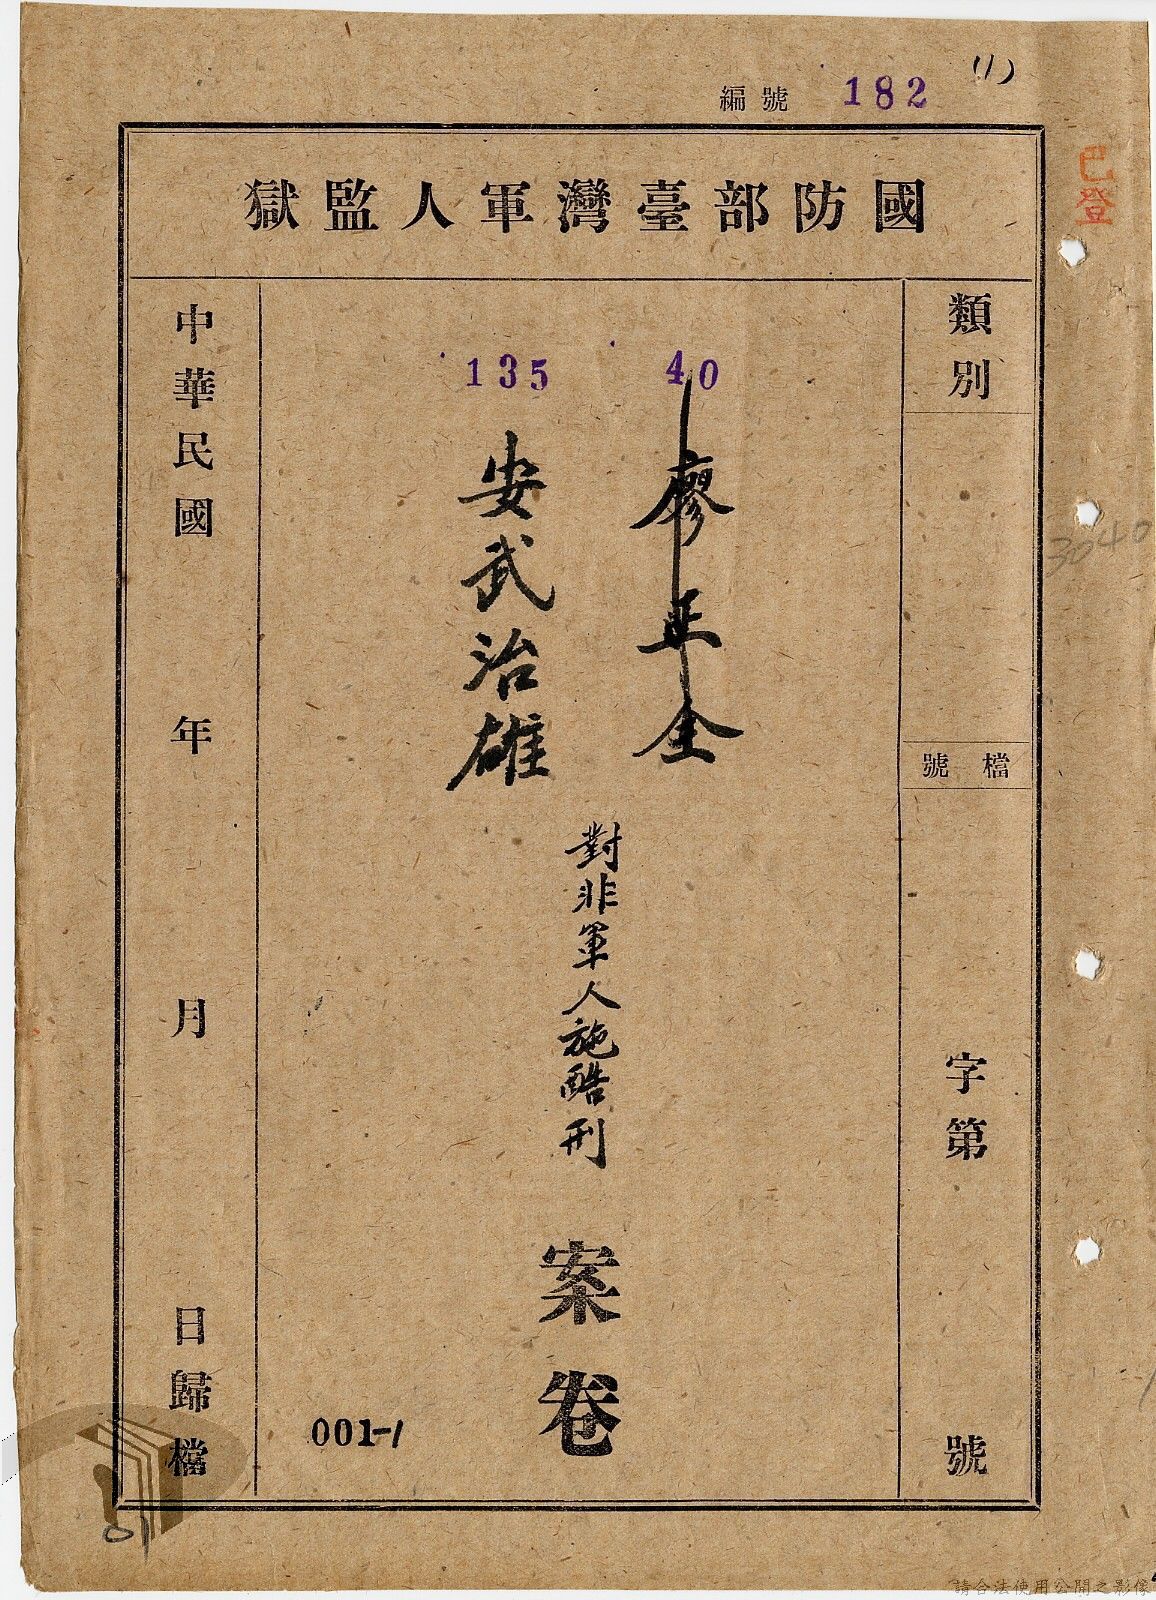 (1)
編號 182
已登
國防部臺灣軍人監獄
類別
檔號
字第
號
3040
40
廖正全
135
安武治雄
對非軍人施酷刑
案卷
中華民國 年 月 日歸檔
001-1
01
請合法使用公開之影像